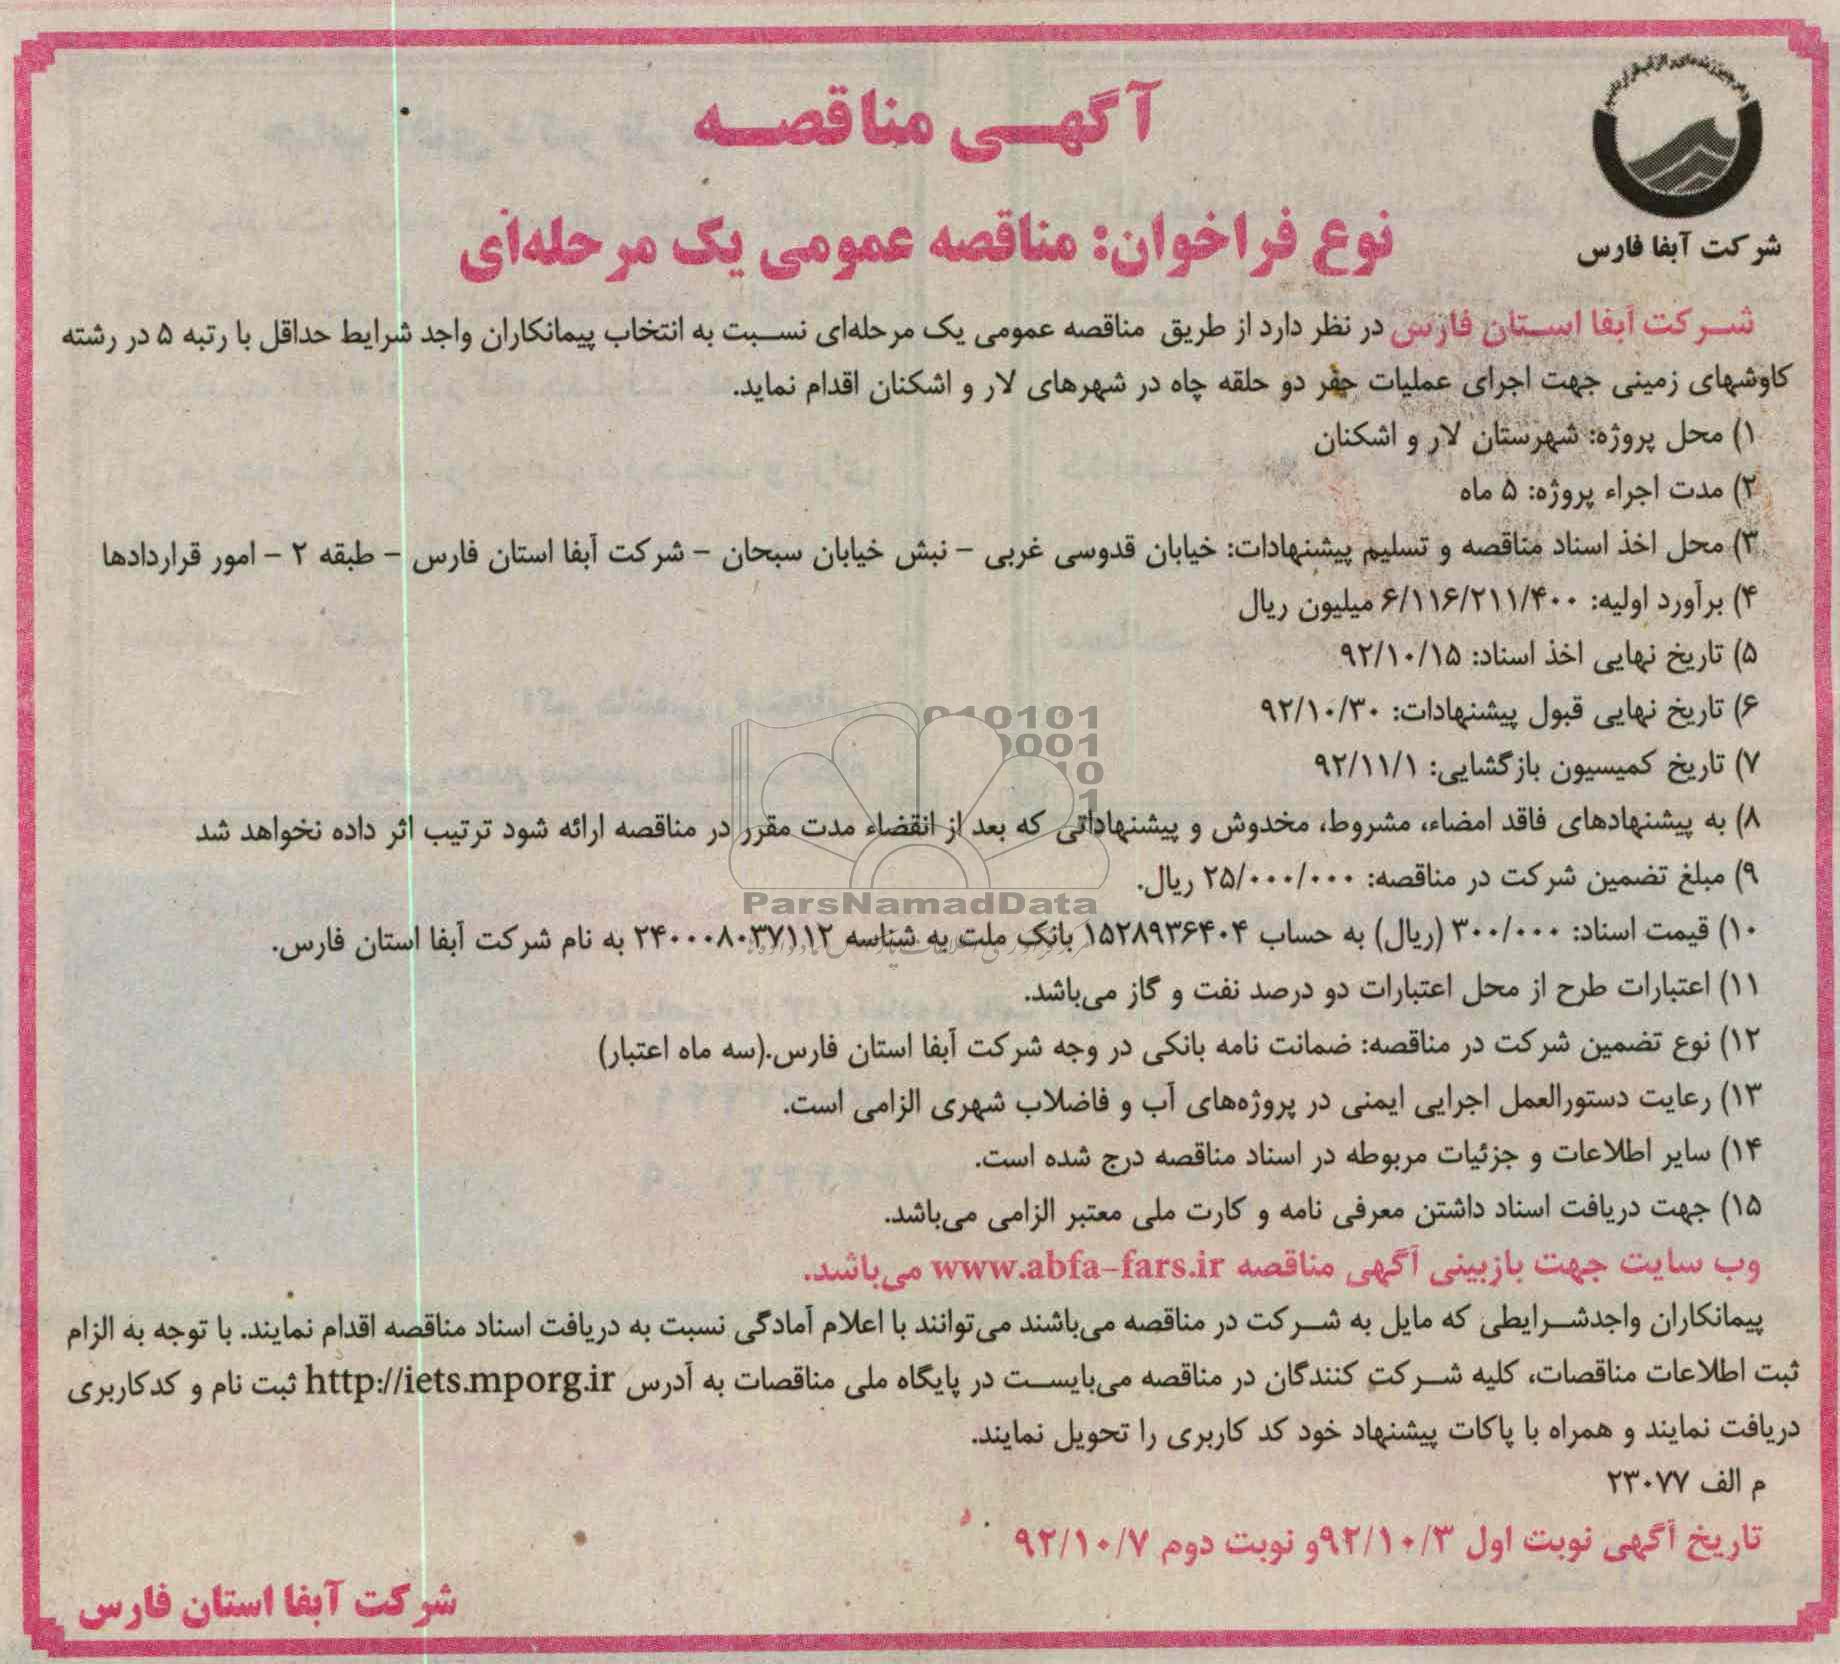 آگهی مناقصه
نوع فراخوان: مناقصه عمومی یک مرحله‌ای
شرکت آبفا فارس
شرکت آبفا استان فارس در نظر دارد از طریق مناقصه عمومی یک مرحله‌ای نسبت به انتخاب پیمانکاران واجد شرایط حداقل با رتبه ۵ در رشته
کاوشهای زمینی جهت اجرای عملیات حفر دو حلقه چاه در شهرهای لار و اشکنان اقدام نماید.
۱) محل پروژه: شهرستان لار و اشکنان
۲) مدت اجراء پروژه: ۵ ماه
۳) محل اخذ اسناد مناقصه و تسلیم پیشنهادات: خیابان قدوسی غربی – نبش خیابان سبحان – شرکت آبفا استان فارس – طبقه ۲ – امور قراردادها
۴) برآورد اولیه: ۶/۱۱۶/۲۱۱/۴۰۰ میلیون ریال
۵) تاریخ نهایی اخذ اسناد: ۹۲/۱۰/۱۵
۶) تاریخ نهایی قبول پیشنهادات: ۹۲/۱۰/۳۰
۷) تاریخ کمیسیون بازگشایی: ۹۲/۱۱/۱
۸) به پیشنهادهای فاقد امضاء، مشروط، مخدوش و پیشنهاداتی که بعد از انقضاء مدت مقرر در مناقصه ارائه شود ترتیب اثر داده نخواهد شد
۹) مبلغ تضمین شرکت در مناقصه: ۲۵/۰۰۰/۰۰۰ ریال.
ParsNamadData
۱۰) قیمت اسناد: ۳۰۰/۰۰۰ (ریال) به حساب ۱۵۲۸۹۳۶۴۰۴ بانک ملت به شناسه ۲۴۰۰۰۸۰۳۷۱۱۲ به نام شرکت آبفا استان فارس.
۱۱) اعتبارات طرح از محل اعتبارات دو درصد نفت و گاز می‌باشد.
۱۲) نوع تضمین شرکت در مناقصه: ضمانت نامه بانکی در وجه شرکت آبفا استان فارس.(سه ماه اعتبار)
۱۳) رعایت دستورالعمل اجرایی ایمنی در پروژه‌های آب و فاضلاب شهری الزامی است.
۱۴) سایر اطلاعات و جزئیات مربوطه در اسناد مناقصه درج شده است.
۱۵) جهت دریافت اسناد داشتن معرفی نامه و کارت ملی معتبر الزامی می‌باشد.
وب سایت جهت بازبینی آگهی مناقصه www.abfa-fars.ir می‌باشد.
پیمانکاران واجدشرایطی که مایل به شرکت در مناقصه می‌باشند می‌توانند با اعلام آمادگی نسبت به دریافت اسناد مناقصه اقدام نمایند. با توجه به الزام
ثبت اطلاعات مناقصات، کلیه شرکت کنندگان در مناقصه می‌بایست در پایگاه ملی مناقصات به آدرس http://iets.mporg.ir ثبت نام و کدکاربری
دریافت نمایند و همراه با پاکات پیشنهاد خود کد کاربری را تحویل نمایند.
م الف ۲۳۰۷۷
تاریخ آگهی نوبت اول ۹۲/۱۰/۳و نوبت دوم ۹۲/۱۰/۷
شرکت آبفا استان فارس